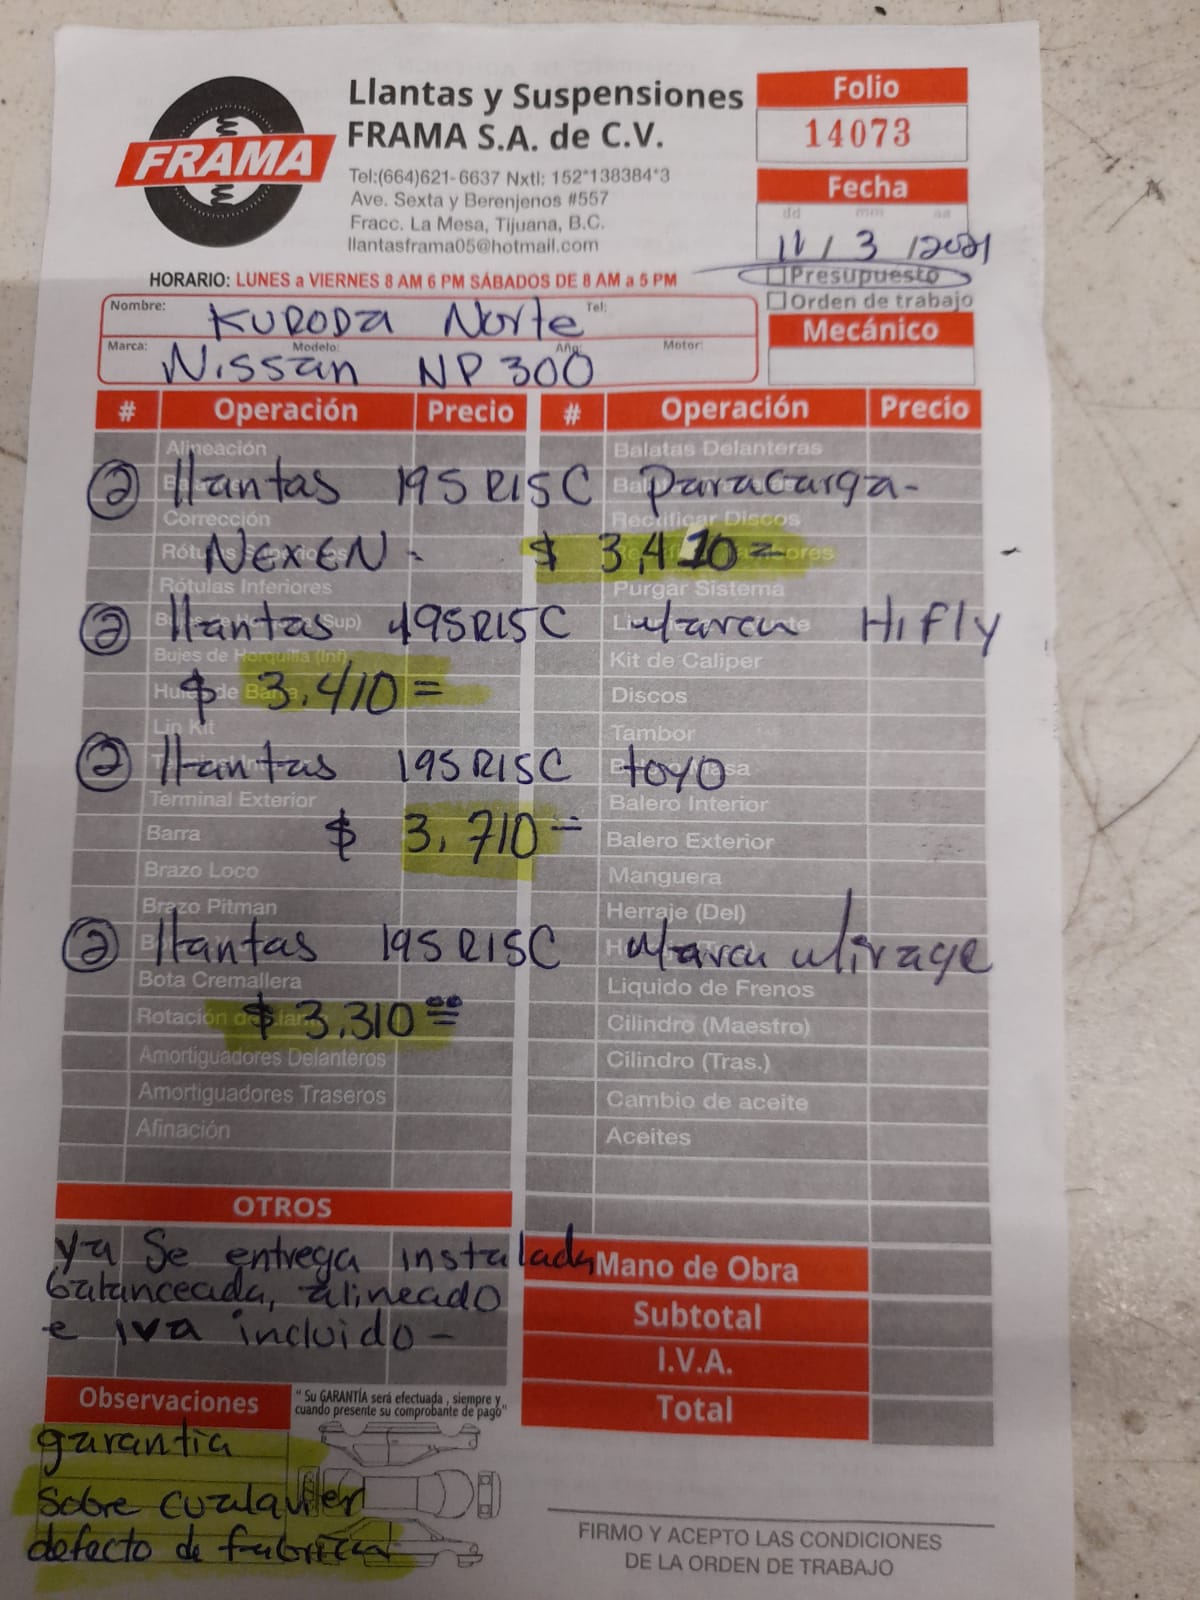 Llantas y Suspensiones
FRAMA S.A. de C.V.
FRAMA
Tel:(664)621- 6637 Nxtl: 152*138384*3
Ave. Sexta y Berenjenos #557
Fracc. La Mesa, Tijuana, B.C.
llantasframa05@hotmail.com
HORARIO: LUNES a VIERNES 8 AM 6 PM SÁBADOS DE 8 AM a 5 PM
Folio
14073
Fecha
dd mm aa
11 / 3 / 2021
Presupuesto
Orden de trabajo
Mecánico
Nombre: KURODA Norte Tel:
Marca: Modelo: Año: Motor:
Nissan NP 300
# Operación Precio # Operación Precio
Alineación Balatas Delanteras
② llantas 195R15C Paracarga-
Corrección Rectificar Discos
NEXEN - $ 3,410=
Rótulas Inferiores Purgar Sistema
② llantas 195R15C Marca Hifly
Bujes de Horquilla (Inf) Kit de Caliper
$ 3.410= Discos
Lin Kit Tambor
② llantas 195R15C toyo
Terminal Exterior Balero Interior
Barra $ 3.710= Balero Exterior
Brazo Loco Manguera
Brazo Pitman Herraje (Del)
② llantas 195R15C Marca Mirage
Bota Cremallera Liquido de Frenos
$ 3.310 00 Cilindro (Maestro)
Amortiguadores Delanteros Cilindro (Tras.)
Amortiguadores Traseros Cambio de aceite
Afinación Aceites
OTROS
ya Se entrega instalada
balanceada, alineado
e iva incluido-
Mano de Obra
Subtotal
I.V.A.
Total
Observaciones
"Su GARANTÍA será efectuada, siempre y
cuando presente su comprobante de pago"
garantia
sobre cualquier
defecto de fabrica
FIRMO Y ACEPTO LAS CONDICIONES
DE LA ORDEN DE TRABAJO